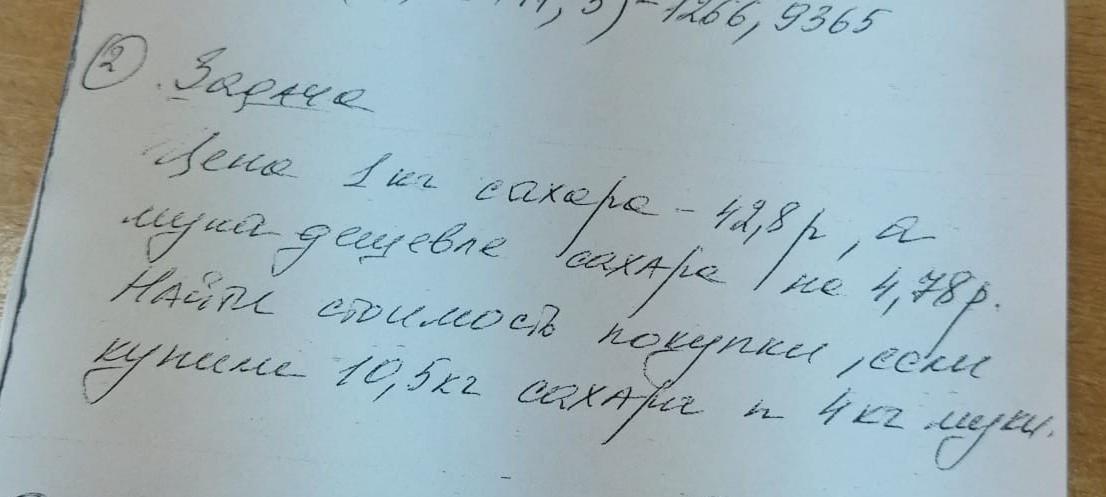 , 5) - 1266, 9365
2 Задача
Цена 1 кг сахара - 42,8 р, а
мука дешевле сахара на 4,78 р.
Найти стоимость покупки, если
купили 10,5 кг сахара и 4 кг муки.